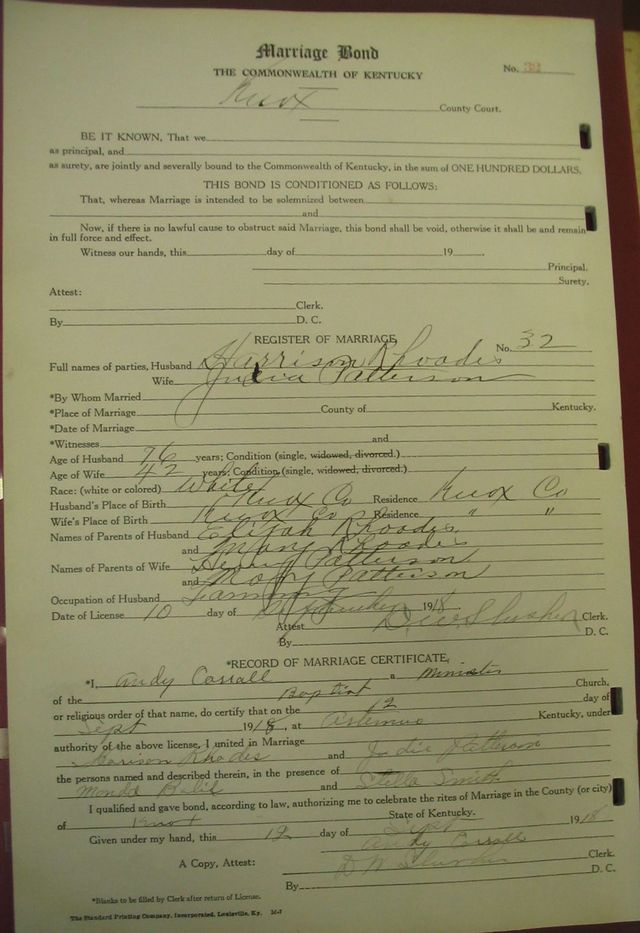 Marriage Bond
No. 32
THE COMMONWEALTH OF KENTUCKY
Knox County Court.
BE IT KNOWN, That we
as principal, and
as surety, are jointly and severally bound to the Commonwealth of Kentucky, in the sum of ONE HUNDRED DOLLARS.
THIS BOND IS CONDITIONED AS FOLLOWS:
That, whereas Marriage is intended to be solemnized between
and
Now, if there is no lawful cause to obstruct said Marriage, this bond shall be void, otherwise it shall be and remain
in full force and effect.
Witness our hands, this day of 19 .
Principal.
Surety.
Attest:
Clerk.
By D. C.
REGISTER OF MARRIAGE
No. 32
Full names of parties, Husband Harrison Rhoades
Wife Patterson
*By Whom Married
*Place of Marriage County of Kentucky.
*Date of Marriage
*Witnesses and
Age of Husband 76 years; Condition (single, widowed, divorced.)
Age of Wife 42 years; Condition (single, widowed, divorced.)
Race: (white or colored) White
Husband's Place of Birth Knox Co Residence Knox Co
Wife's Place of Birth Knox Co Residence " "
Names of Parents of Husband Elijah Rhoades
and Mary Rhoades
Names of Parents of Wife Patterson
and Patterson
Occupation of Husband Farming
Date of License 10 day of September 1918
Attest Clerk.
By D. C.
*RECORD OF MARRIAGE CERTIFICATE
*I, Andy a Minister
of the Baptist Church,
or religious order of that name, do certify that on the 12 day of
Sept 1918, at Artemus Kentucky, under
authority of the above license, I united in Marriage
Harison Rhodes and Judie Patterson
the persons named and described therein, in the presence of
and Stella Smith
I qualified and gave bond, according to law, authorizing me to celebrate the rites of Marriage in the County (or city)
of Knox State of Kentucky.
Given under my hand, this 12 day of Sept 1918
Andy
A Copy, Attest: Clerk.
By D. C.
*Blanks to be filled by Clerk after return of License.
The Standard Printing Company, Incorporated, Louisville, Ky.